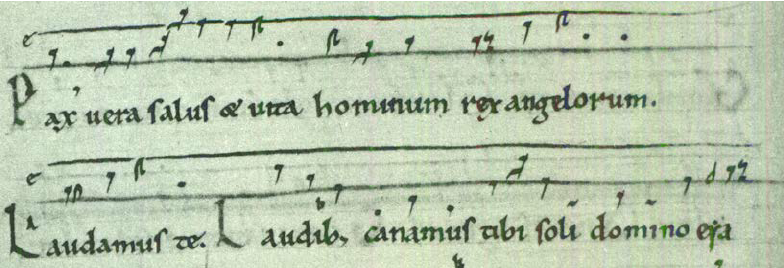 Pax uera salus & uita hominum rex angelorum.
Laudamus te. Laudib; canamus tibi soli domino eya